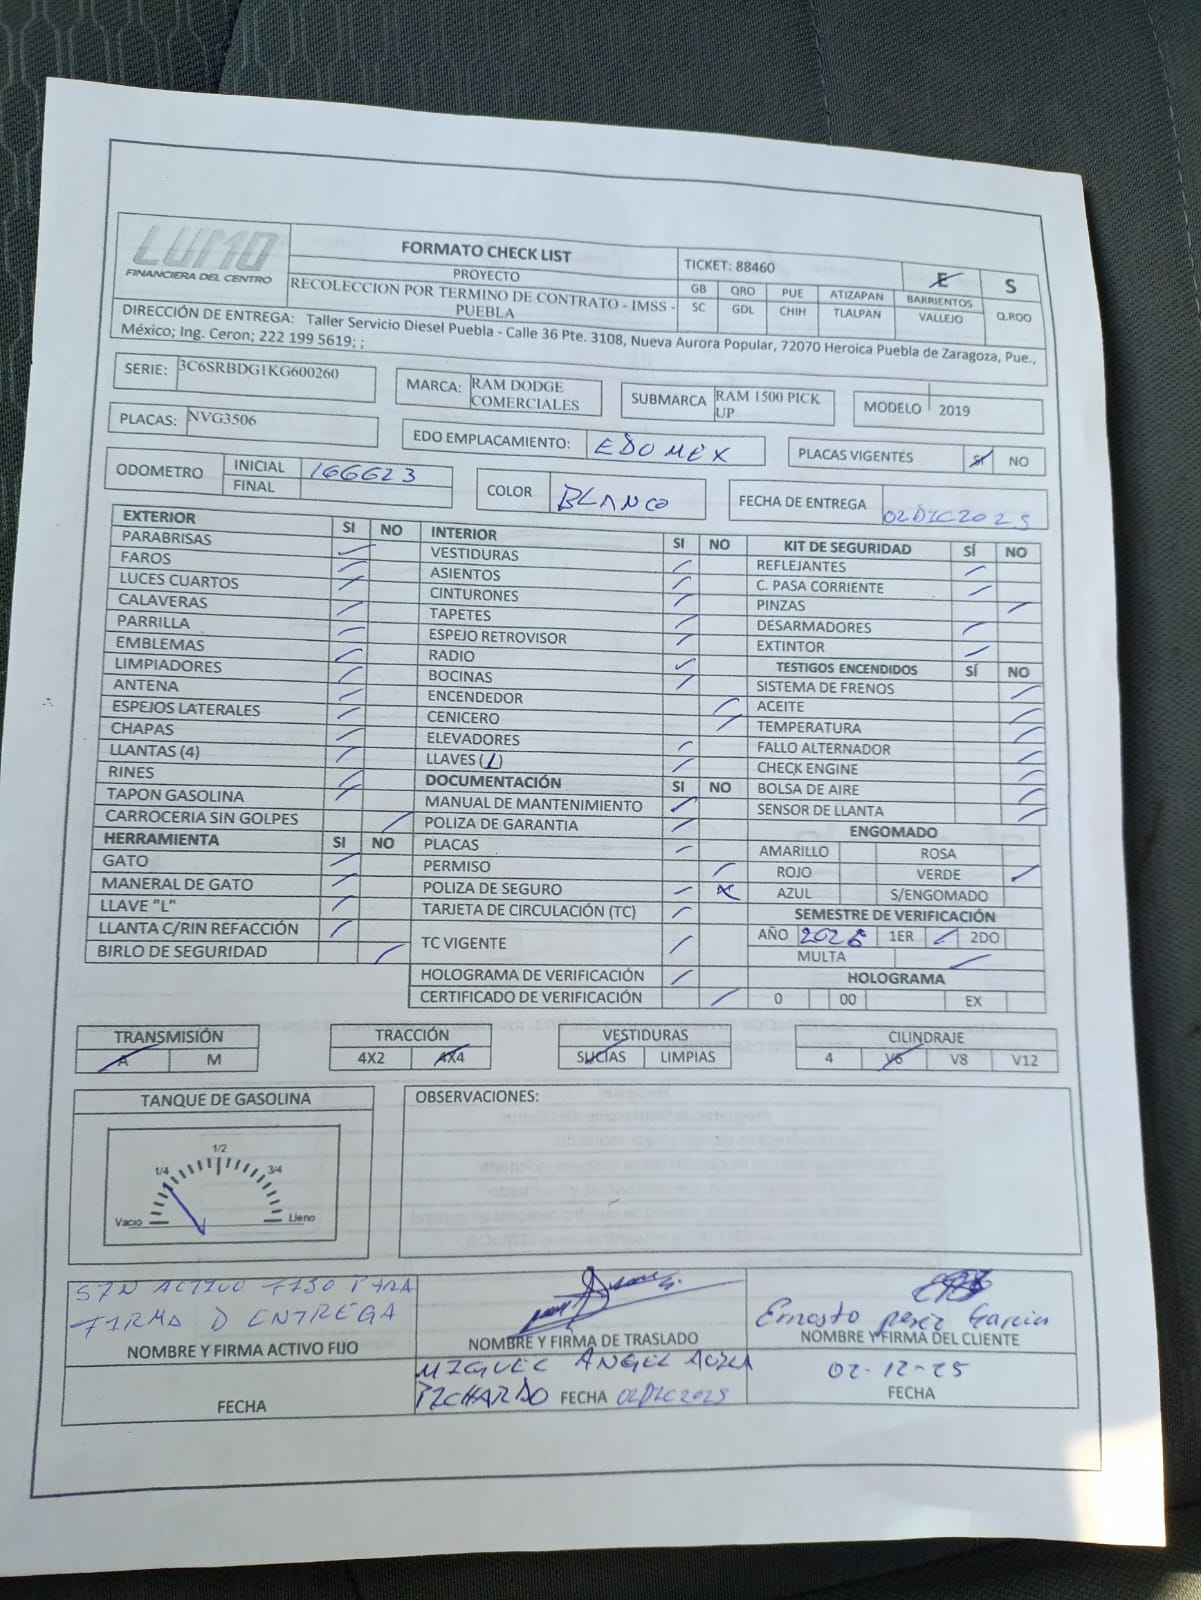 LUMO
FINANCIERA DEL CENTRO
FORMATO CHECK LIST
PROYECTO
RECOLECCION POR TERMINO DE CONTRATO - IMSS -
PUEBLA
TICKET: 88460
E S
GB QRO PUE ATIZAPAN BARRIENTOS Q.ROO
SC GDL CHIH TLALPAN VALLEJO
DIRECCIÓN DE ENTREGA: Taller Servicio Diesel Puebla - Calle 36 Pte. 3108, Nueva Aurora Popular, 72070 Heroica Puebla de Zaragoza, Pue.,
México; Ing. Ceron; 222 199 5619; ;
SERIE: 3C6SRBDG1KG600260
MARCA: RAM DODGE
COMERCIALES
SUBMARCA RAM 1500 PICK
UP
MODELO 2019
PLACAS: NVG3506
EDO EMPLACAMIENTO: EDO MEX
PLACAS VIGENTES SI NO
ODOMETRO INICIAL 166623
FINAL
COLOR BLANCO
FECHA DE ENTREGA 02DIC2025
EXTERIOR SI NO
PARABRISAS
FAROS
LUCES CUARTOS
CALAVERAS
PARRILLA
EMBLEMAS
LIMPIADORES
ANTENA
ESPEJOS LATERALES
CHAPAS
LLANTAS (4)
RINES
TAPON GASOLINA
CARROCERIA SIN GOLPES
HERRAMIENTA SI NO
GATO
MANERAL DE GATO
LLAVE "L"
LLANTA C/RIN REFACCIÓN
BIRLO DE SEGURIDAD
INTERIOR SI NO
VESTIDURAS
ASIENTOS
CINTURONES
TAPETES
ESPEJO RETROVISOR
RADIO
BOCINAS
ENCENDEDOR
CENICERO
ELEVADORES
LLAVES (1)
DOCUMENTACIÓN SI NO
MANUAL DE MANTENIMIENTO
POLIZA DE GARANTIA
PLACAS
PERMISO
POLIZA DE SEGURO
TARJETA DE CIRCULACIÓN (TC)
TC VIGENTE
HOLOGRAMA DE VERIFICACIÓN
CERTIFICADO DE VERIFICACIÓN
KIT DE SEGURIDAD SÍ NO
REFLEJANTES
C. PASA CORRIENTE
PINZAS
DESARMADORES
EXTINTOR
TESTIGOS ENCENDIDOS SÍ NO
SISTEMA DE FRENOS
ACEITE
TEMPERATURA
FALLO ALTERNADOR
CHECK ENGINE
BOLSA DE AIRE
SENSOR DE LLANTA
ENGOMADO
AMARILLO ROSA
ROJO VERDE
AZUL S/ENGOMADO
SEMESTRE DE VERIFICACIÓN
AÑO 2025 1ER 2DO
MULTA
HOLOGRAMA
0 00 EX
TRANSMISIÓN
A M
TRACCIÓN
4X2 4X4
VESTIDURAS
SUCIAS LIMPIAS
CILINDRAJE
4 V6 V8 V12
TANQUE DE GASOLINA
1/4 1/2 3/4
Vacio Lleno
OBSERVACIONES:
SIN ACTIVO FIJO PARA
FIRMA D ENTREGA
NOMBRE Y FIRMA ACTIVO FIJO
FECHA
NOMBRE Y FIRMA DE TRASLADO
MIGUEL ANGEL
PICHARDO FECHA 02DIC2025
Ernesto perez Garcia
NOMBRE Y FIRMA DEL CLIENTE
02-12-25
FECHA